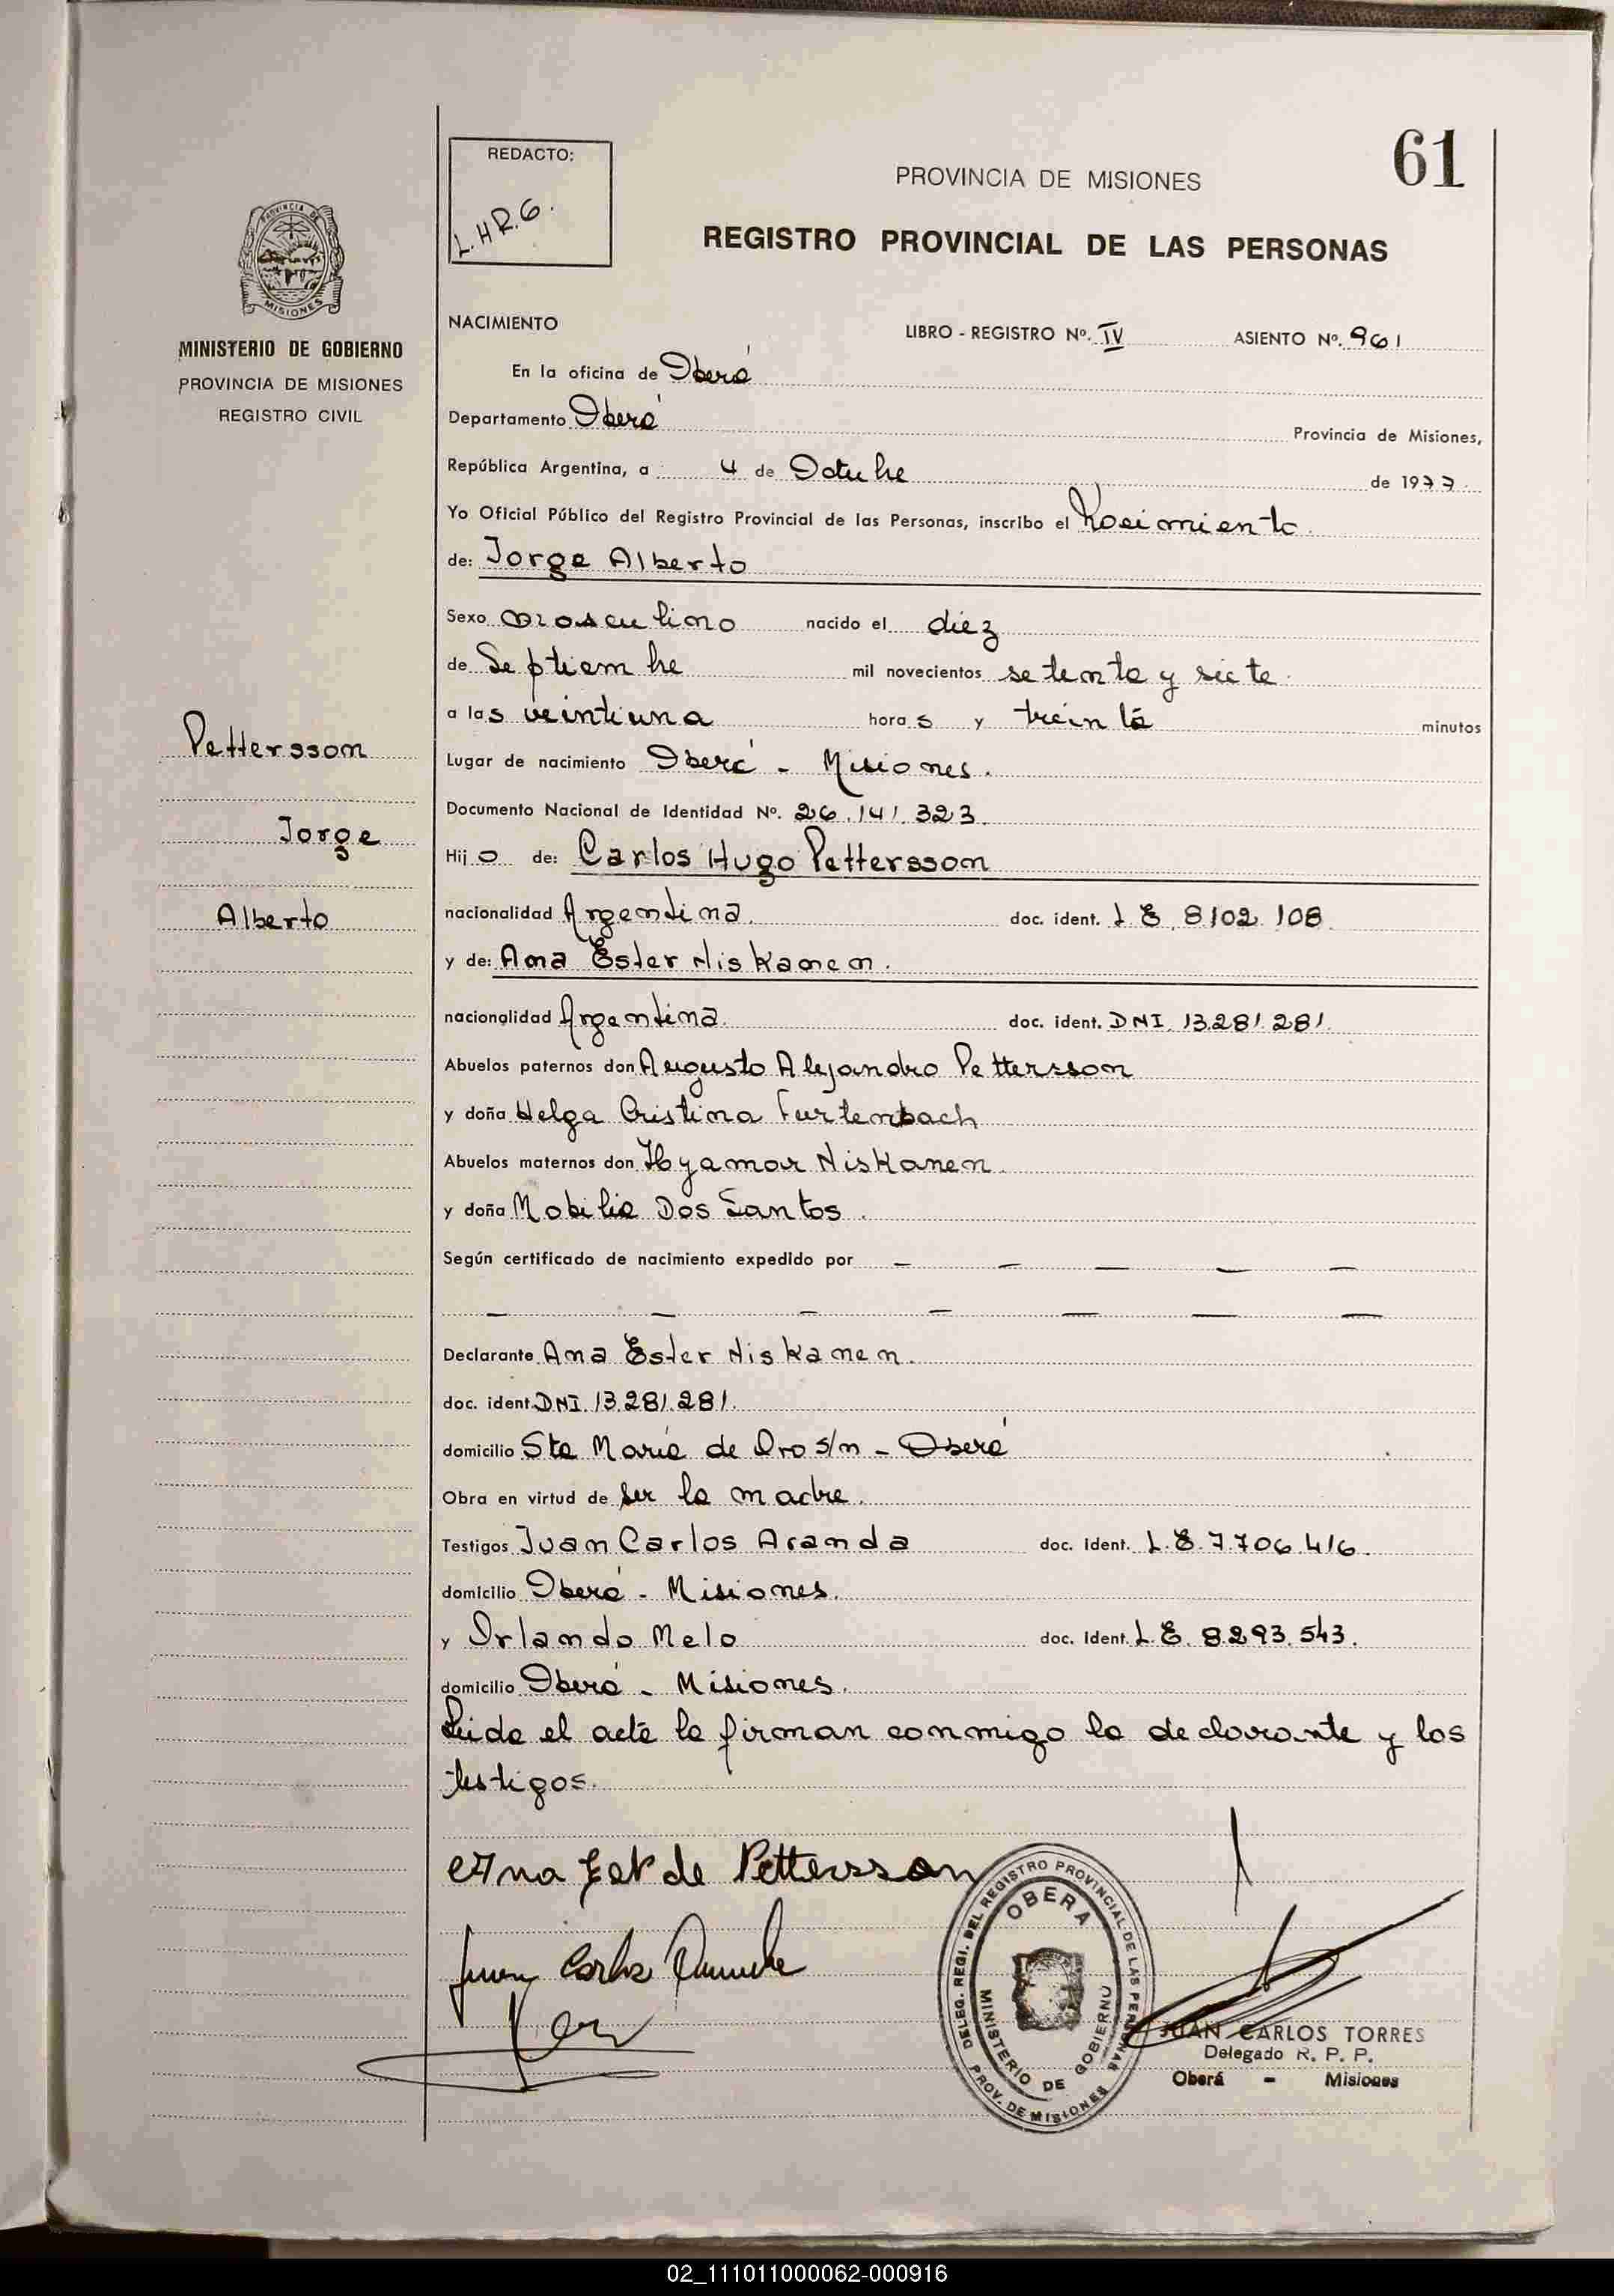 61
REDACTO:
L.H.R.G.
PROVINCIA DE MISIONES
REGISTRO PROVINCIAL DE LAS PERSONAS
PROVINCIA DE
MISIONES
MINISTERIO DE GOBIERNO
PROVINCIA DE MISIONES
REGISTRO CIVIL
Pettersson
Jorge
Alberto
NACIMIENTO LIBRO - REGISTRO Nº. IV ASIENTO Nº. 961
En la oficina de Oberá
Departamento Oberá Provincia de Misiones,
República Argentina, a 4 de Octubre de 1977
Yo Oficial Público del Registro Provincial de las Personas, inscribo el Nacimiento
de: Jorge Alberto
Sexo masculino nacido el diez
de Septiembre mil novecientos setenta y siete
a las veintiuna horas y treinta minutos
Lugar de nacimiento Oberá - Misiones.
Documento Nacional de Identidad Nº. 26.141.323
Hijo de: Carlos Hugo Pettersson
nacionalidad Argentina. doc. ident. L E 8102.108
y de: Ana Ester Niskanen.
nacionalidad Argentina. doc. ident. DNI. 13.281.281.
Abuelos paternos don Augusto Alejandro Pettersson
y doña Helga Cristina Furtenbach
Abuelos maternos don Hyamar Niskanen.
y doña Mobilia Dos Santos.
Según certificado de nacimiento expedido por — — — — —
— — — — — — —
Declarante Ana Ester Niskanen.
doc. ident. DNI. 13.281.281.
domicilio Sta María de Oro s/n - Oberá
Obra en virtud de ser la madre.
Testigos Juan Carlos Aranda doc. ident. L.E. 7.706.416.
domicilio Oberá - Misiones.
y Orlando Melo doc. ident. L.E. 8.293.543.
domicilio Oberá - Misiones.
Leida el acta la firman conmigo la declarante y los
testigos.
Ana de Pettersson
Juan Carlos
DELEG. REGI. DEL REGISTRO PROVINCIAL DE LAS PERSONAS
OBERA
MINISTERIO DE GOBIERNO
PROV. DE MISIONES
JUAN CARLOS TORRES
Delegado R. P. P.
Oberá - Misiones
02_111011000062-000916